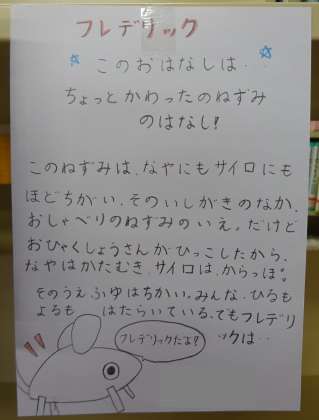 フレデリック
このおはなしは・・
ちょっとかわったのねずみ
のはなし!
このねずみは、なやにもサイロにも
ほどちかい、そのいしがきのなか、
おしゃべりのねずみのいえ。だけど
おひゃくしょうさんがひっこしたから、
なやはかたむき、サイロは、からっぽ。
そのうえふゆはちかい。みんな、ひるも
よるも はたらいている。でもフレデリ
ックは・・
フレデリックだよ?